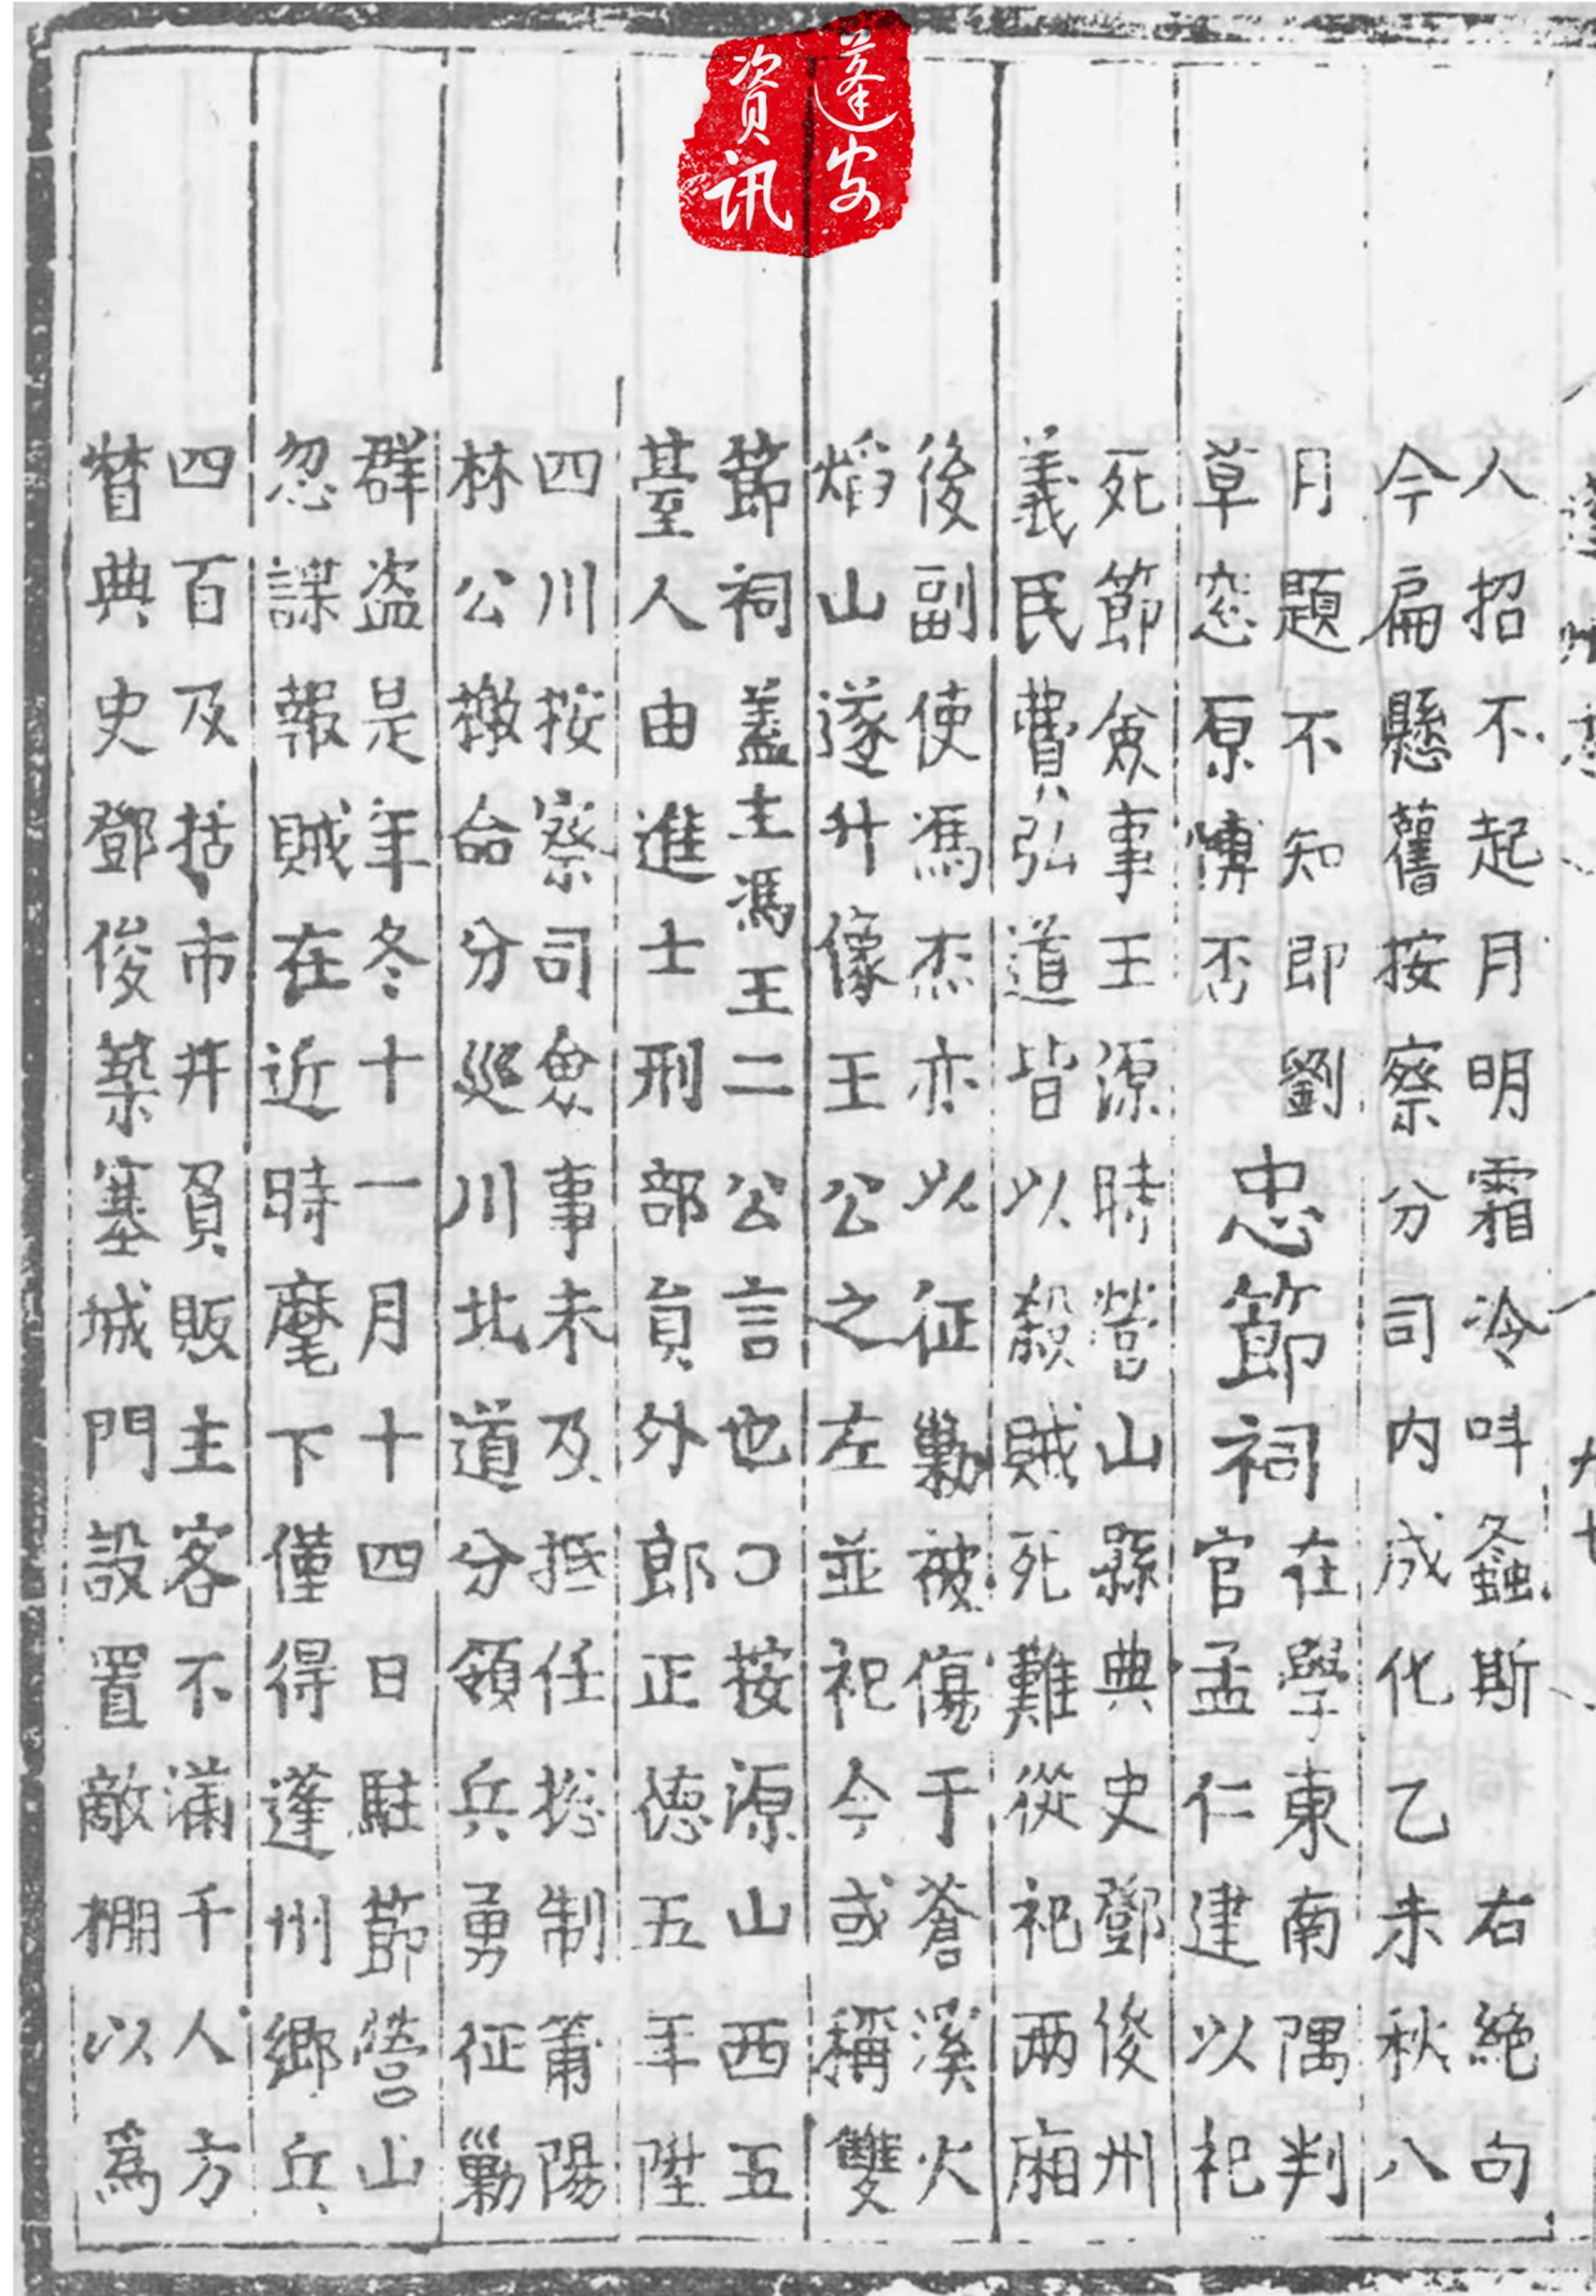 蓬安
资讯
人招不起月明霜冷呌螽斯 右絕句
今扁懸舊按察分司内成化乙未秋八
月題不知即劉
草窓原博否
忠節祠
在學東南隅判
官孟仁建以祀
死節僉事王源時營山縣典史鄧俊州
義民費弘道皆以殺賊死難從祀兩廂
後副使馮杰亦以征勦被傷于蒼溪火
熖山遂升像王公之左並祀今或稱雙
節祠蓋主馮王二公言也 按源山西五
臺人由進士刑部員外郎正徳五年陞
四川按察司僉事未及抵任捴制蕭陽
林公檄命分廵川北道分領兵勇征勦
群盗是年冬十一月十四日駐節營山
忽諜報賊在近時麾下僅得蓬州鄉兵
四百及括市井負販主客不滿千人方
督典史鄧俊築塞城門設置敵棚以爲